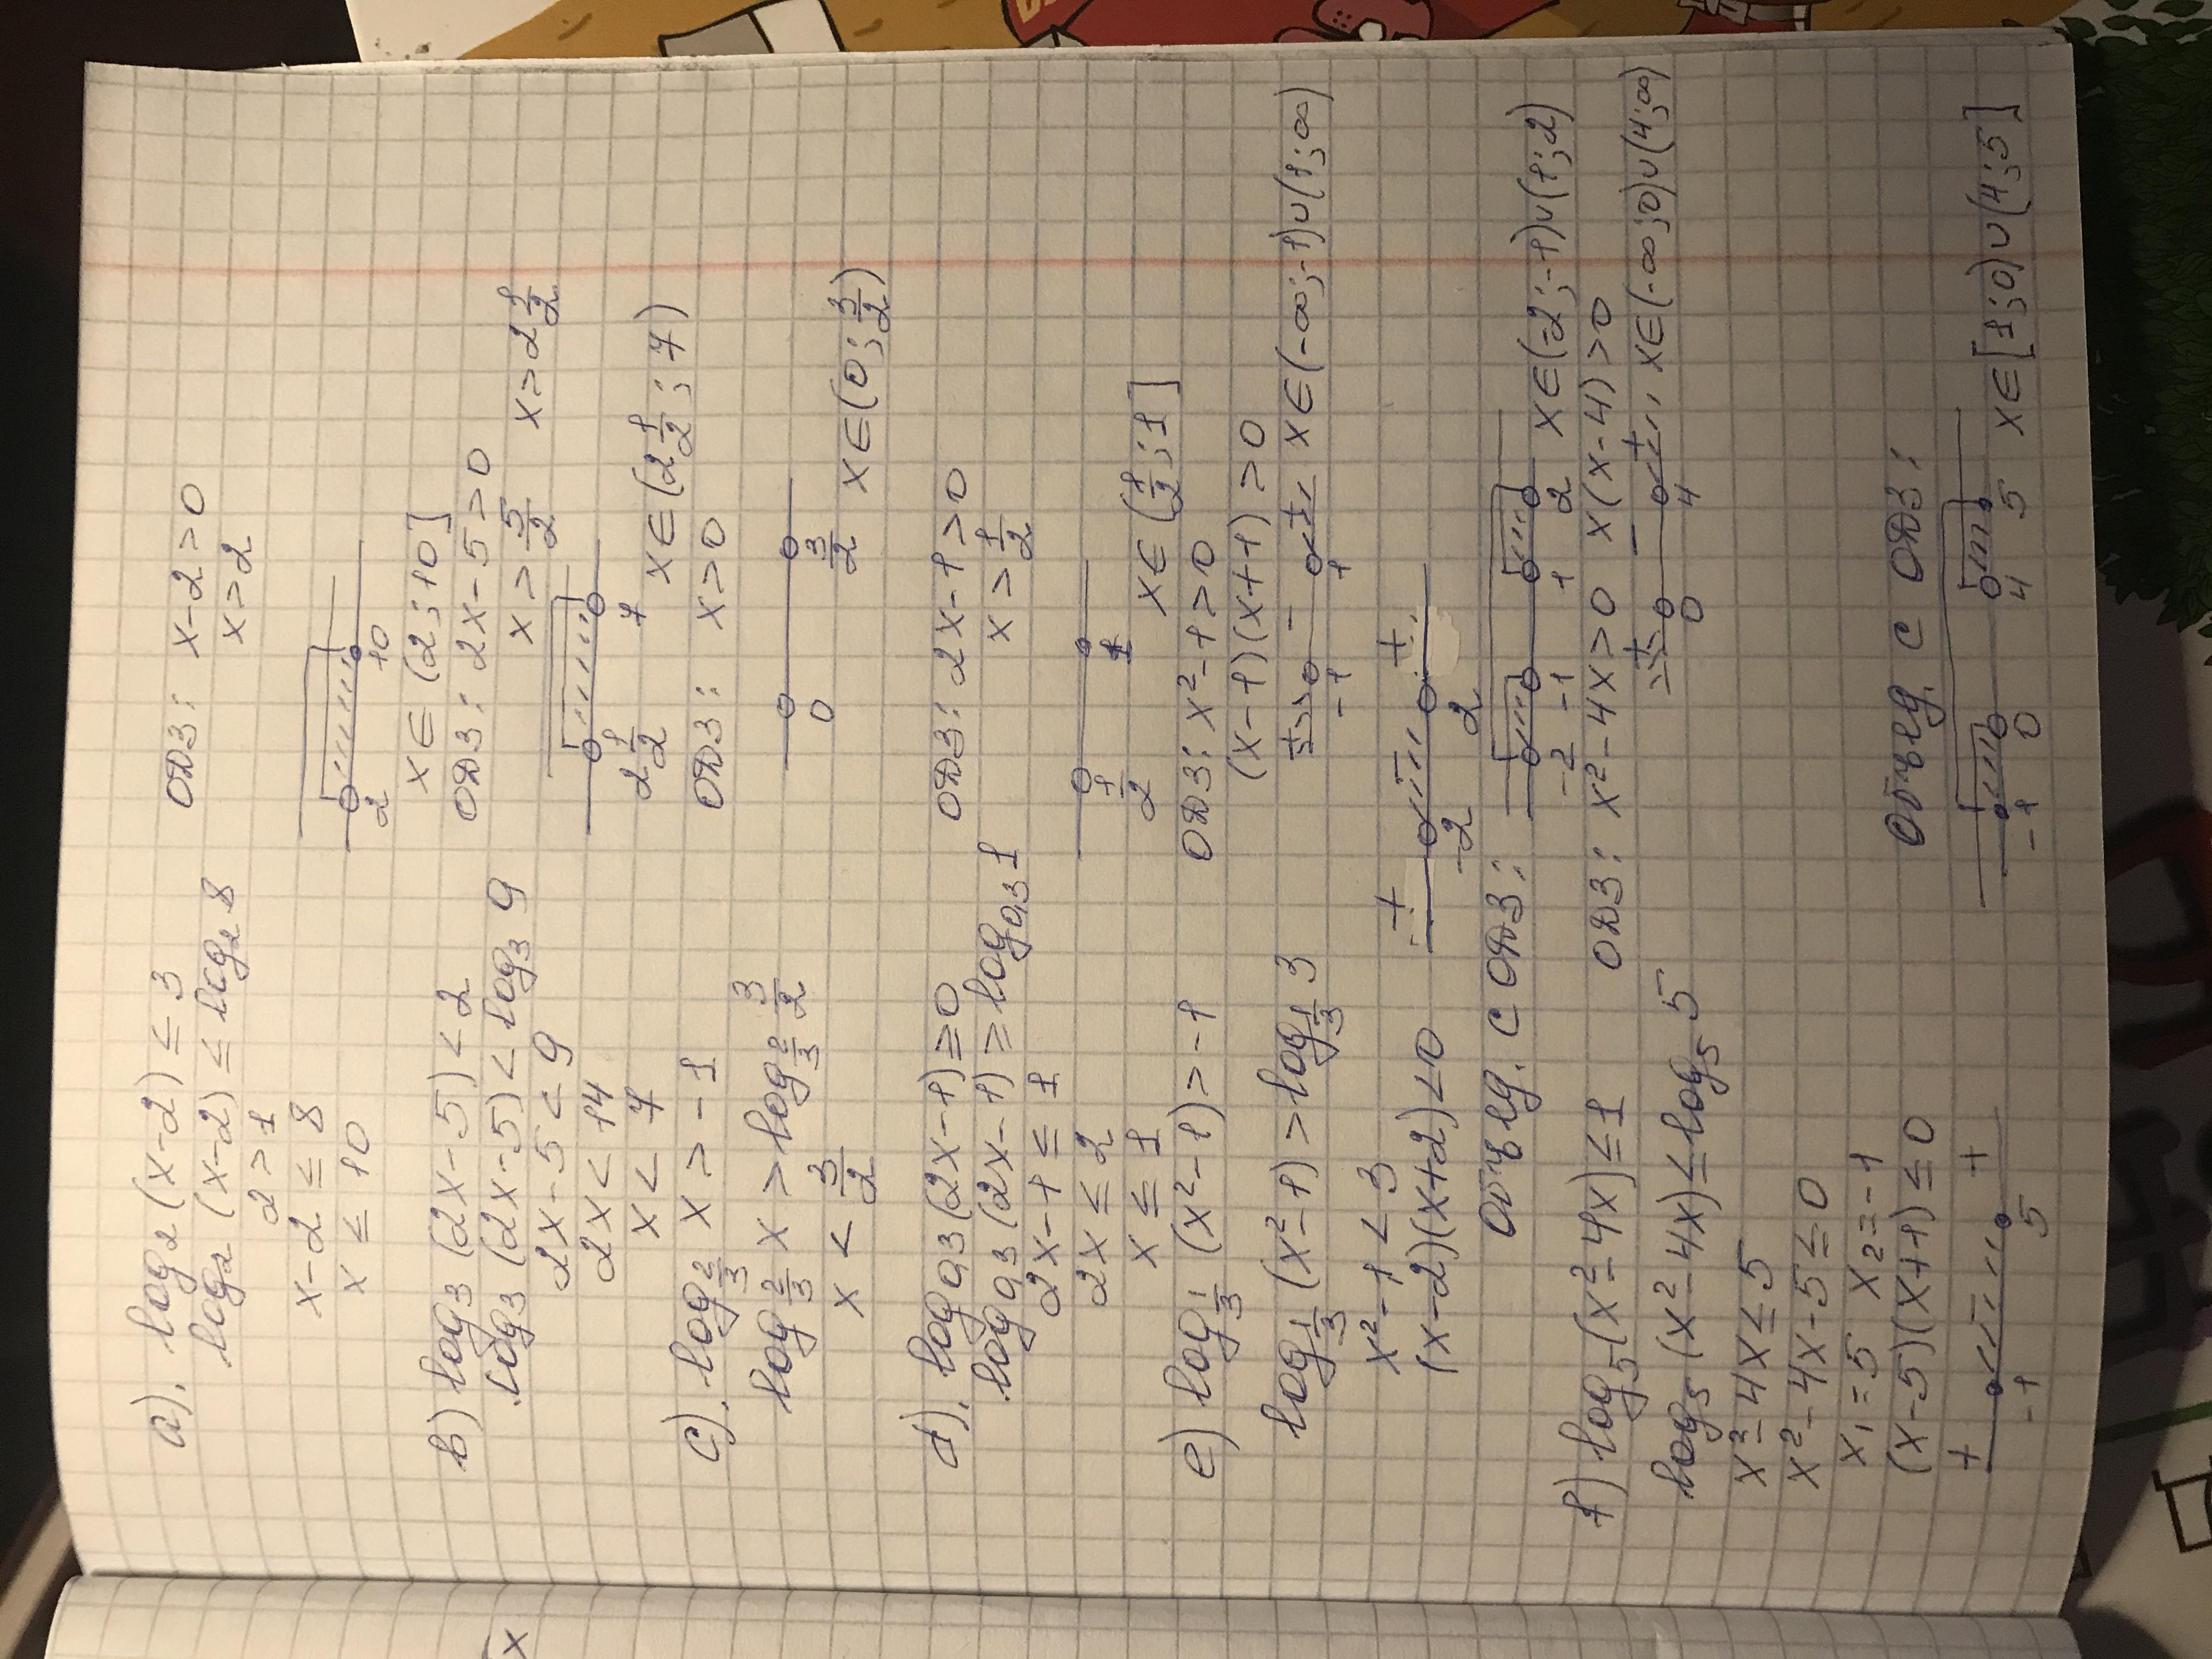 a). log₂(x-2) ≤ 3 ОДЗ: x-2>0
log₂(x-2) ≤ log₂8 x>2
2>1
x-2 ≤ 8
x ≤ 10
2 10
x∈(2;10]
b) log₃(2x-5)<2 ОДЗ: 2x-5>0
log₃(2x-5)<log₃9 x>5/2 x>2 1/2
2x-5<9
2x<14
x<7
2 1/2 7
x∈(2 1/2;7)
c). log_2/3 x>-1 ОДЗ: x>0
log_2/3 x>log_2/3 3/2
x<3/2
0 3/2
x∈(0;3/2)
d). log₀,₃(2x-1)≥0 ОДЗ: 2x-1>0
log₀,₃(2x-1)≥log₀,₃1 x>1/2
2x-1≤1
2x≤2
x≤1
1/2 1
x∈(1/2;1]
e) log_1/3 (x²-1)>-1 ОДЗ: x²-1>0
(x-1)(x+1)>0
log_1/3 (x²-1)>log_1/3 3
+ - +
-1 1
x∈(-∞;-1)∪(1;∞)
x²-1<3
(x-2)(x+2)<0
+ - +
-2 2
с ОДЗ:
-2 -1 1 2
x∈(-2;-1)∪(1;2)
f) log₅(x²-4x)≤1 ОДЗ: x²-4x>0 x(x-4)>0
log₅(x²-4x)≤log₅5
+ - +
0 4
x∈(-∞;0)∪(4;∞)
x²-4x≤5
x²-4x-5≤0
x₁=5 x₂=-1
(x-5)(x+1)≤0
с ОДЗ:
+ - +
-1 5
-1 0 4 5
x∈[1;0)∪(4;5]
x